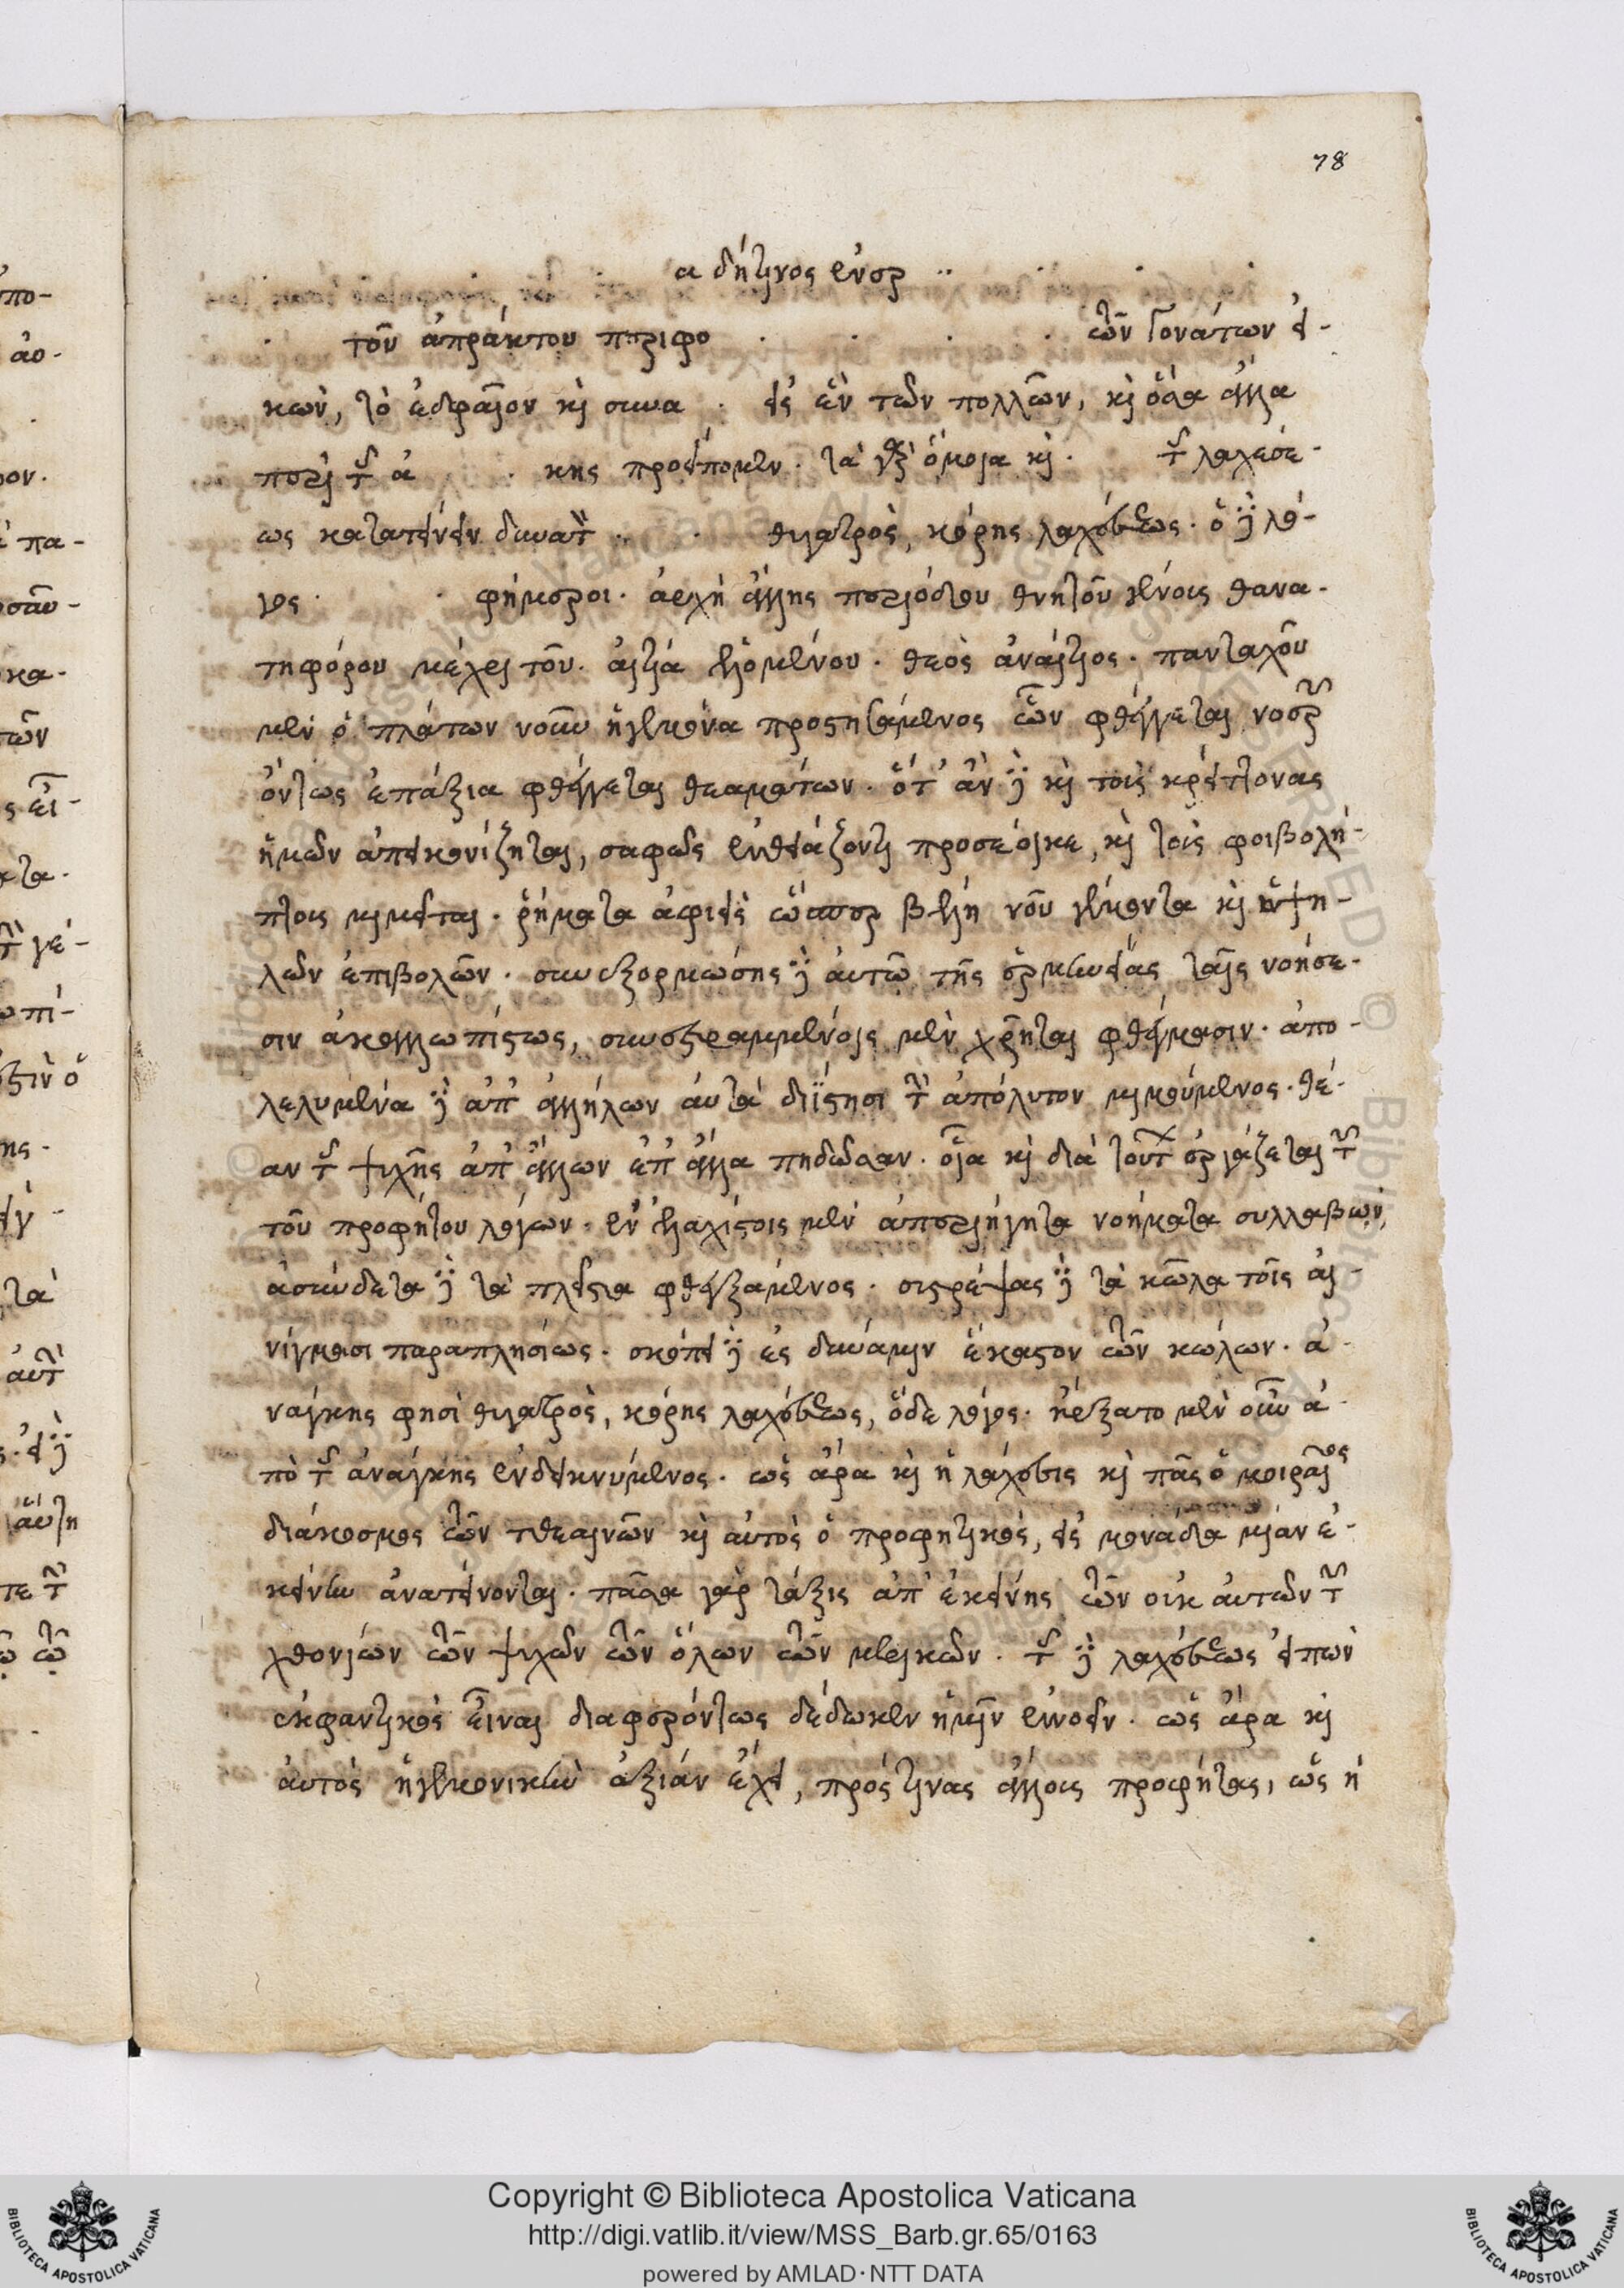 78
α δή τινος ἐνερ
τοῦ ἀπράκτου περιφο . . . . τῶν γονάτων εἰ-
κών, τὸ ἑδραῖον καὶ συνα . εἰς ἓν τῶν πολλῶν, καὶ ὅσα ἄλλα
περὶ τῆς ἀ . κης προείπομεν. τὰ γὰρ ὅμοια καὶ . τῆς λαχέσε-
ως κατατείνειν δυνατὸν . . θυγατρὸς, κόρης λαχέσεως. ὅδε λό-
γος . . φήμεροι. ἀρχὴ ἄλλης περιόδου θνητοῦ γένους θανα-
τηφόρου μέχρι τοῦ. αἰτία ἑλομένου. θεὸς ἀναίτιος. πανταχοῦ
μὲν ὁ πλάτων νοῦν ἡγεμόνα προστησάμενος ὧν φθέγγεται, νοερῶν
ὄντως ἐπάξια φθέγγεται θεαμάτων. ὅτ' ἂν δὲ καὶ τοὺς κρείττονας
ἡμῶν ἀπεικονίζηται, σαφῶς ἐνθεάζοντι προσέοικε, καὶ τοῖς φοιβολή-
πτοις μιμεῖται. ῥήματα ἀφιεὶς ὥσπερ βέλη νοῦ γέμοντα καὶ ὑψη-
λῶν ἐπιβολῶν. συνεξορμώσης δὲ αὐτῷ τῆς ἑρμηνείας ταῖς νοήσε-
σιν ἀκαλλωπίστως, συνεστραμμένοις μὲν χρῆται φθέγμασιν. ἀπο-
λελυμένα δὲ ἀπ' ἀλλήλων αὐτὰ διΐστησι τὸ ἀπόλυτον μιμούμενος. θέ-
αν τῆς ψυχῆς ἀπ' ἄλλων ἐπ' ἄλλα πηδῶσαν. οἷα καὶ διὰ τούτων ἐργάζεται τῶν
τοῦ προφήτου λόγων. ἐν ἐλαχίστοις μὲν ἀπεριήγητα νοήματα συλλαβών,
ἀσύνδετα δὲ τὰ πλεῖστα φθεγξάμενος. συστρέψας δὲ τὰ κῶλα τοῖς αἰ-
νίγμασι παραπλησίως. σκόπει δὲ ἐς δύναμιν ἕκαστον τῶν κώλων. ἀ-
νάγκης φησὶ θυγατρὸς, κόρης λαχέσεως, ὅδε λόγος. ἤρξατο μὲν οὖν ἀ-
πὸ τῆς ἀνάγκης ἐνδεικνύμενος. ὡς ἄρα καὶ ἡ λάχεσις καὶ πᾶς ὁ μοιραῖος
διάκοσμος τῶν τεθεαμένων καὶ αὐτὸς ὁ προφητικὸς, εἰς μονάδα μίαν ἐ-
κείνην ἀνατείνονται. πᾶσα γὰρ τάξις ἀπ' ἐκείνης τῶν οὐκ αὐτῶν τῶν
χθονίων τῶν ψυχῶν τῶν ὅλων τῶν μερικῶν. τῆς δὲ λαχέσεως εἰπὼν
ἐκφαντικὸς εἶναι διαφερόντως δέδωκεν ἡμῖν ἐννοεῖν. ὡς ἄρα καὶ
αὐτὸς ἡγεμονικὴν ἀξίαν ἔχει, πρός τινας ἄλλους προφήτας, ὡς ἡ
Copyright © Biblioteca Apostolica Vaticana
http://digi.vatlib.it/view/MSS_Barb.gr.65/0163
powered by AMLAD·NTT DATA